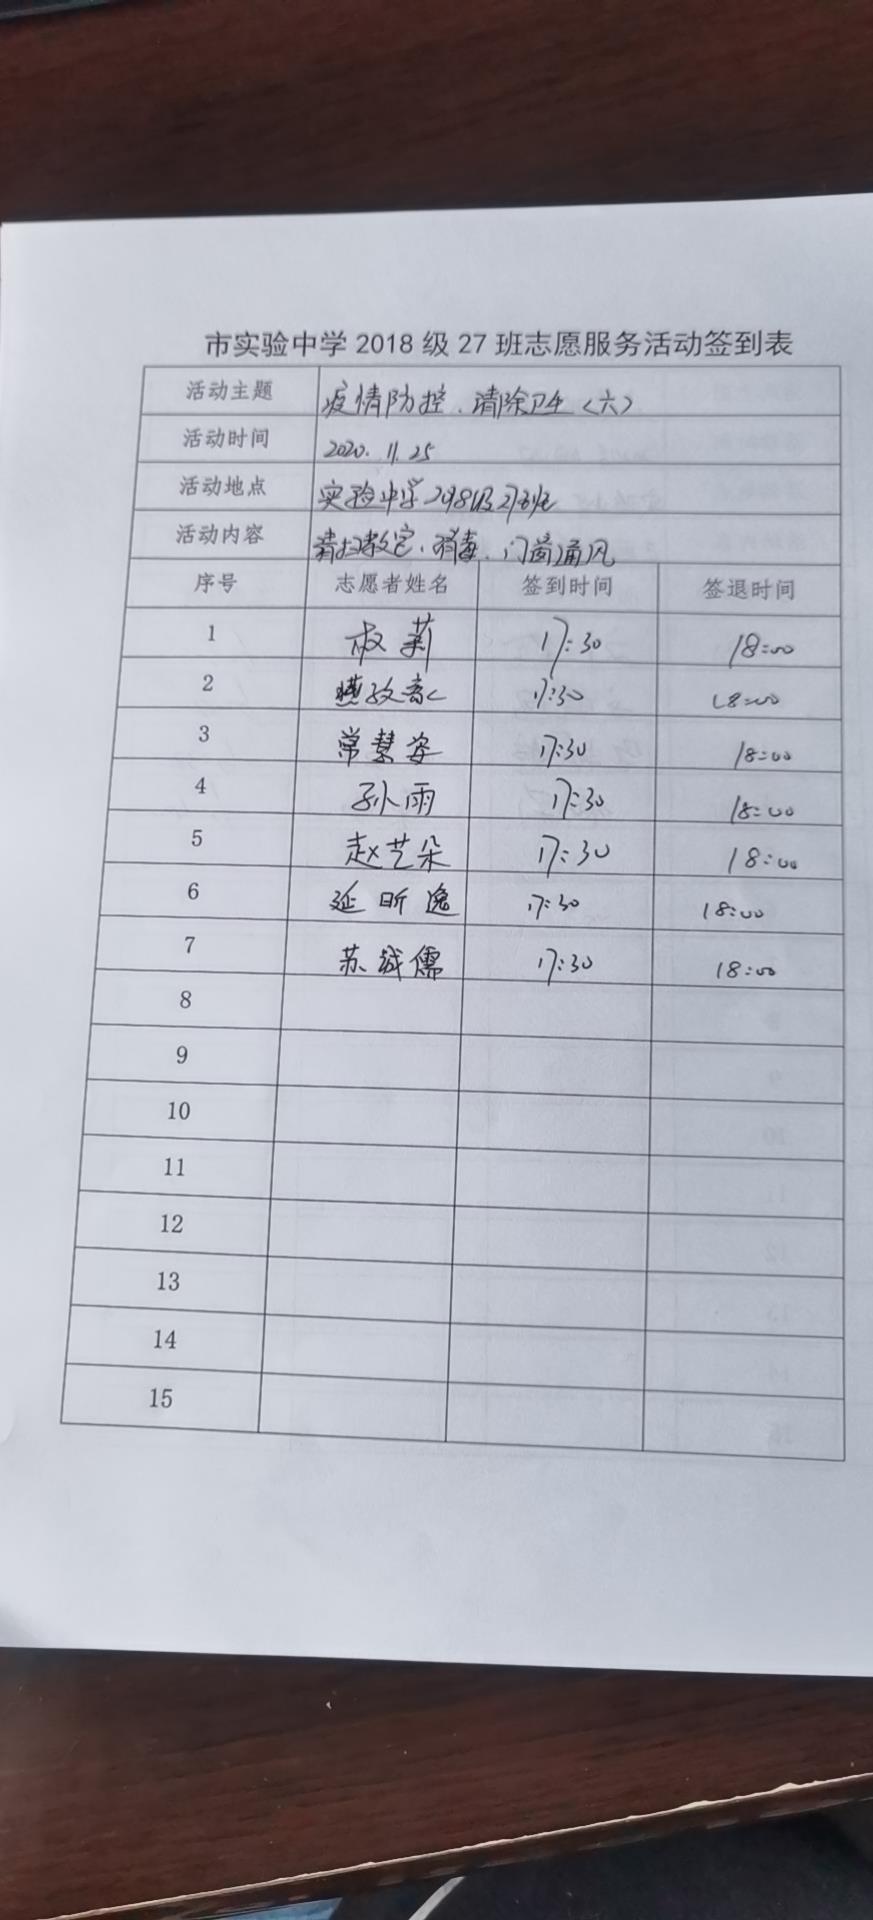 市实验中学2018级27班志愿服务活动签到表
活动主题 疫情防控、清除卫生(六)
活动时间 2020.11.25
活动地点 实验中学2018级27班
活动内容 清扫教室、消毒、门窗通风
序号 志愿者姓名 签到时间 签退时间
1 权莉 17:30 18:00
2 17:30 18:00
3 常慧姿 17:30 18:00
4 孙雨 17:30 18:00
5 赵艺朵 17:30 18:00
6 延昕逸 17:30 18:00
7 苏钺儒 17:30 18:00
8
9
10
11
12
13
14
15